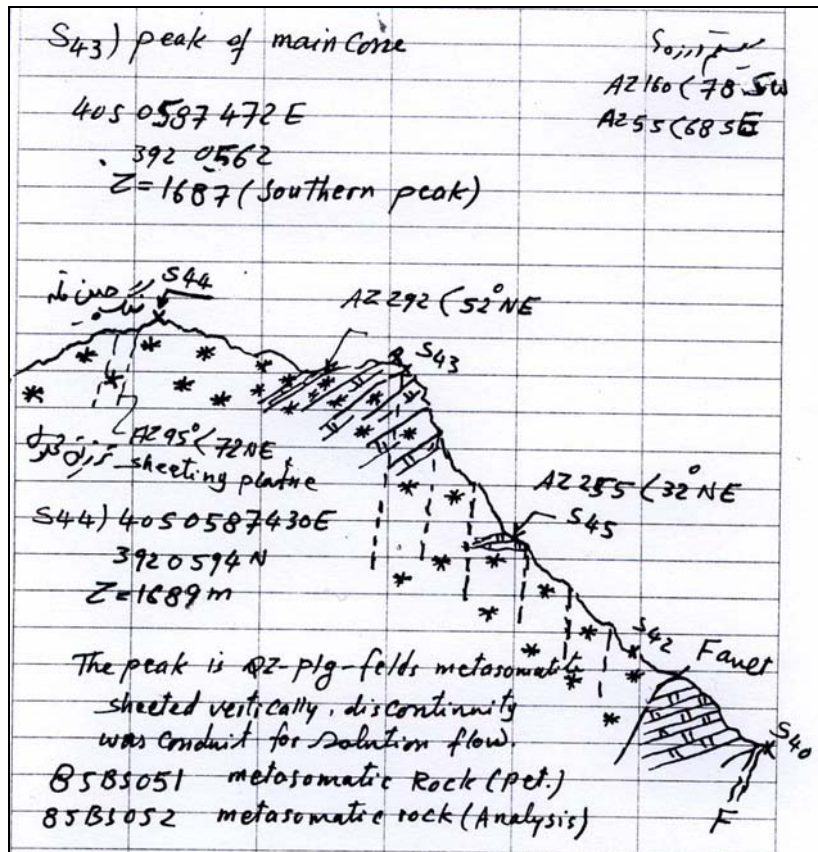 S43) peak of main Corre
AZ160 (78 SW
40S 0587 472 E
AZ55 (68 SE
392 0562
Z=1687 (Southern peak)
S44
AZ292 (52° NE
S43
AZ95° (72 NE
sheeting platne
AZ255 (32° NE
S45
S44) 40S 0587430E
3920594N
Z=1689 m
S42
Fault
The peak is QZ-plg-felds metasomatite
sheeted vertically, discontinuity
was conduit for solution flow.
S40
85BS051 metasomatic Rock (Pet.)
85BS052 metasomatic rock (Analysis)
F